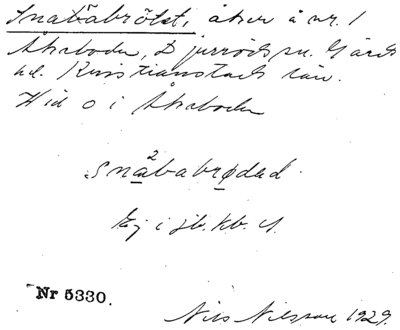 Snabäbrötet, åker å nr. 1
Åkaboda, Djurröds sn. Gärds
hd. Kristianstads län.
Vid o i Åkaboda
snåbabrødəd.
Ej i jb. kb.
Nr 5330.
Nils Nilsson 1929.